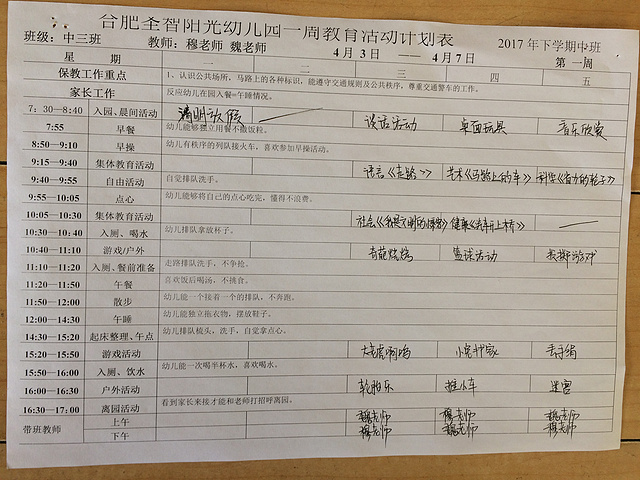 合肥圣智阳光幼儿园一周教育活动计划表
班级：中三班 教师：穆老师 魏老师 4月3日——4月7日 2017年下学期中班
第一周
星期 一 二 三 四 五
保教工作重点 1、认识公共场所，马路上的各种标识，能遵守交通规则及公共秩序，尊重交通警车的工作。
家长工作 反应幼儿在园入餐=午睡情况。
7：30—8:40 入园、晨间活动 清明放假 谈话活动 桌面玩具 音乐欣赏
7:55 早餐 幼儿能够独立用餐不撒饭粒。
8:50—9:10 早操 幼儿有秩序的列队接火车，喜欢参加早操活动。
9:15—9:40 集体教育活动 语言《走路》 艺术《马路上的车》 科学《省力的轮子》
9:40—9:55 自由活动 自觉排队洗手。
9:55—10:05 点心 幼儿能够将自己的点心吃完，懂得不浪费。
10:05—10:30 集体教育活动 社会《我是文明的乘客》 健康
10:30—10:40 入厕、喝水 幼儿排队拿放杯子。
10:40—11:10 游戏/户外 篮球活动
11:10—11:20 入厕、餐前准备 走路排队洗手，不争抢。
11:20—11:50 午餐 喜欢饭后喝汤，不挑食。
11:50—12:00 散步 幼儿能一个接着一个的排队，不奔跑。
12:00—14:30 午睡 幼儿能独立拖衣物，摆放鞋子。
14:30—15:20 起床整理、午点 幼儿排队梳头，洗手，自觉拿点心。
15:20—15:50 游戏活动 丢手绢
15:50—16:00 入厕、饮水 幼儿能一次喝半杯水，喜欢喝水。
16:00—16:30 户外活动 轮胎乐 推小车 迷宫
16:30—17:00 离园活动 看到家长来接才能和老师打招呼离园。
带班教师 上午 魏老师 穆老师 魏老师
下午 穆老师 魏老师 穆老师